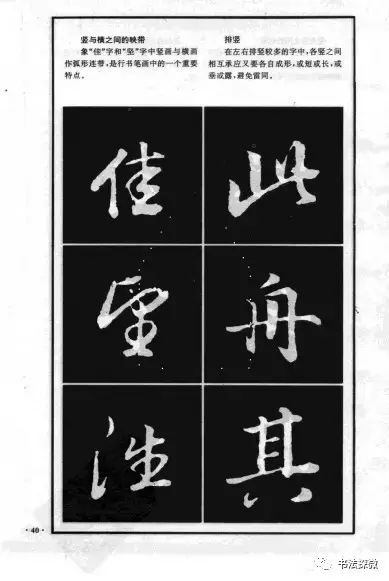 竖与横之间的映带
象“佳”字和“坚”字中竖画与横画
作弧形连带，是行书笔画中的一个重要
特点。
排竖
在左右排竖较多的字中，各竖之间
相互承应又要各自成形，或短或长，或
垂或露，避免雷同。
佳
此
舟
其
·40·
书法探教